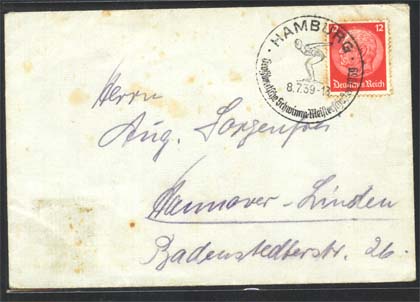 HAMBURG
12
8.7.39-1
Großdeutsche Schwimm-Meistersch
Deutsches Reich
Herrn
Aug. Sorgenfrei
Hannover-Linden
Badenstedterstr. 26.